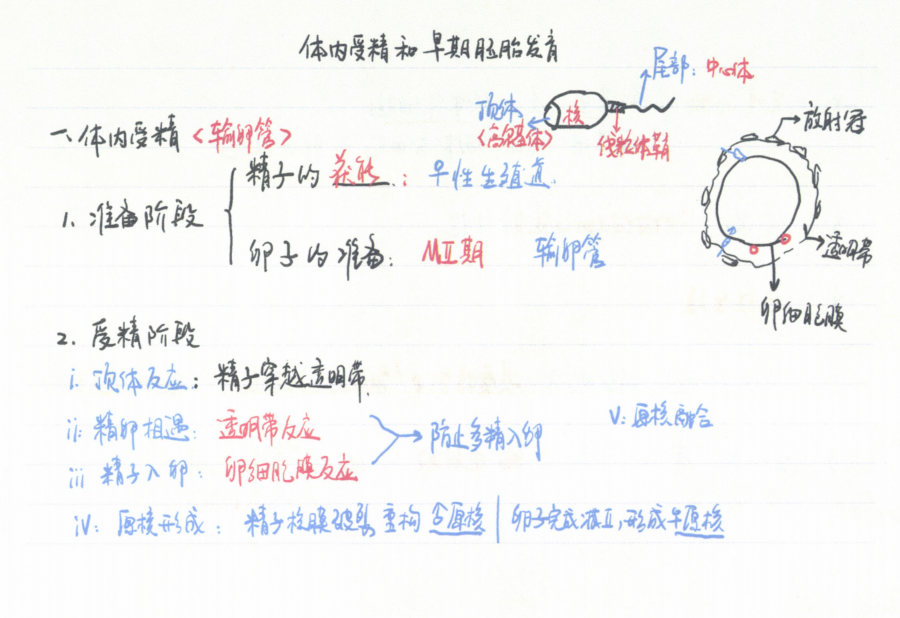 体内受精和早期胚胎发育
尾部：中心体
顶体
<高尔基体>
核
线粒体鞘
放射冠
透明带
卵细胞膜
一、体内受精<输卵管>
1. 准备阶段
精子的获能：早性生殖道
卵子的准备：MⅡ期 输卵管
2. 受精阶段
i. 顶体反应：精子穿越透明带.
ii: 精卵相遇：透明带反应
iii 精子入卵：卵细胞膜反应
防止多精入卵
V: 原核融合
iV: 原核形成：精子核膜破裂重构 合原核 | 卵子完成减Ⅱ, 形成早原核